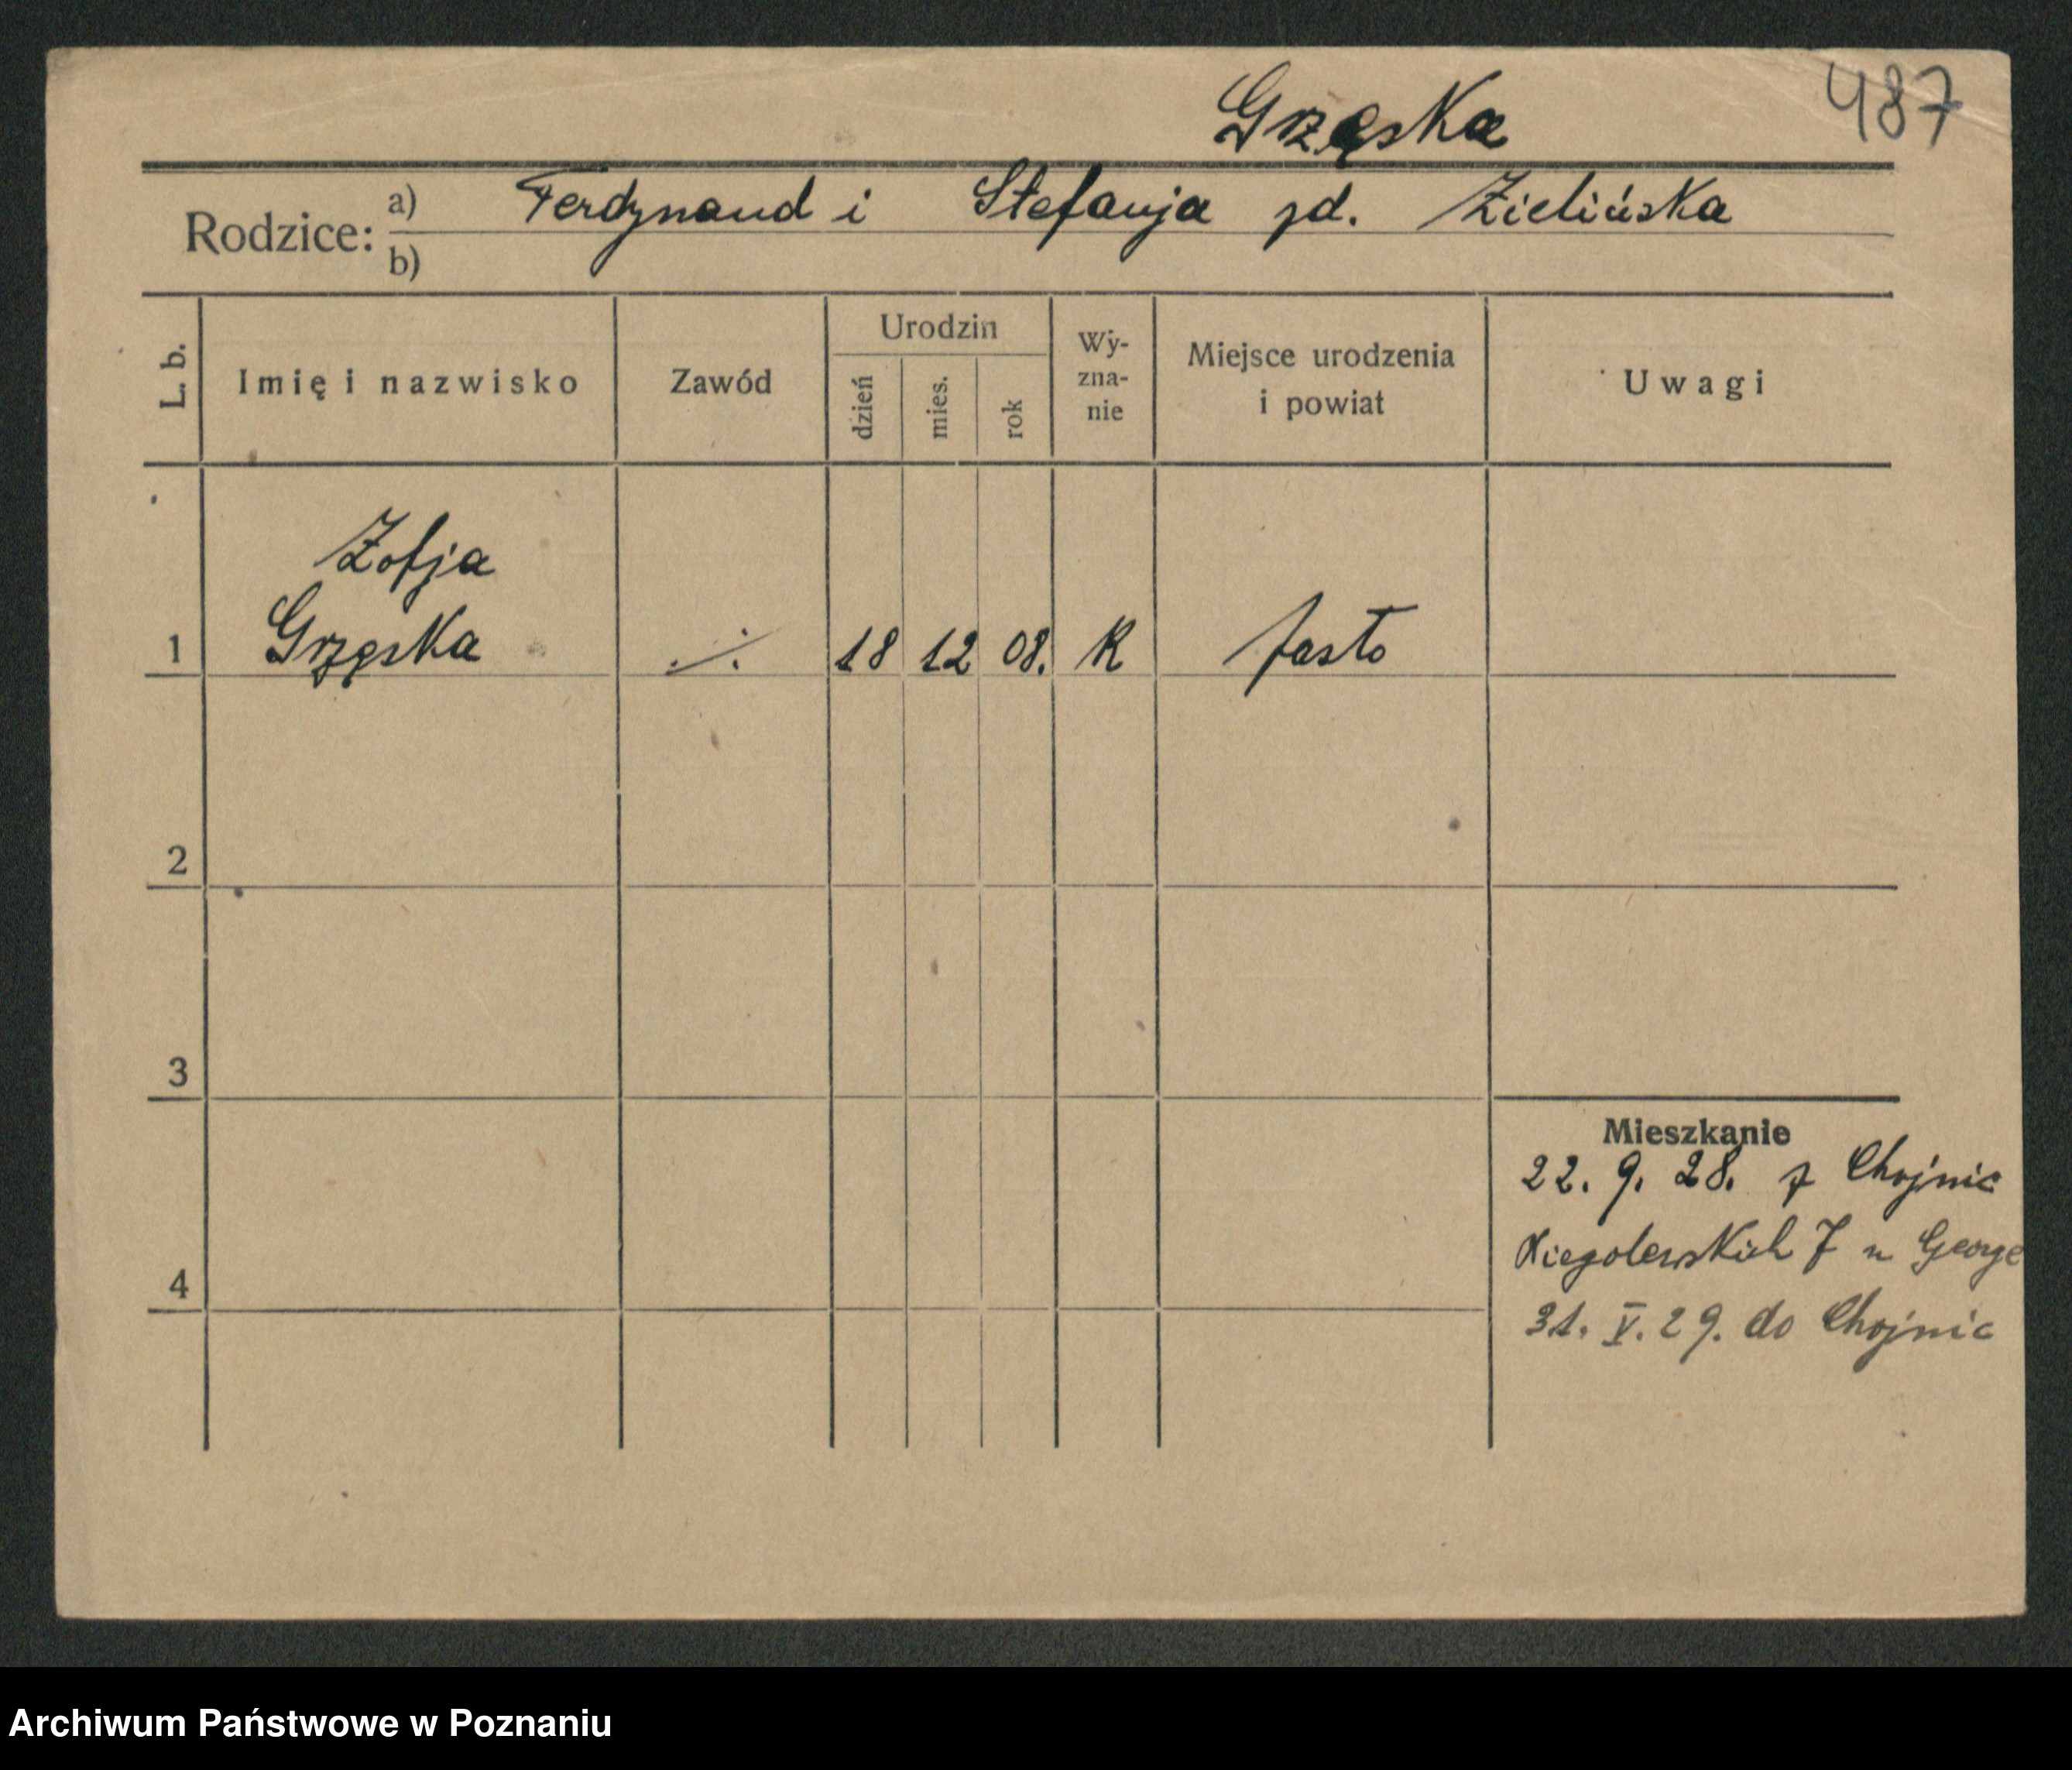 Grzęska 487
Rodzice: a) Ferdynand i Stefanja zd. Zielińska
b)
L. b. Imię i nazwisko Zawód Urodzin dzień mies. rok Wy- zna- nie Miejsce urodzenia i powiat Uwagi
Zofja
1 Grzęska ·/. 18 12 08. K Jasło
2
3
Mieszkanie
22. 9. 28. z Chojnic
Niegolewskich 7 u George
4
31. V. 29. do Chojnic
Archiwum Państwowe w Poznaniu